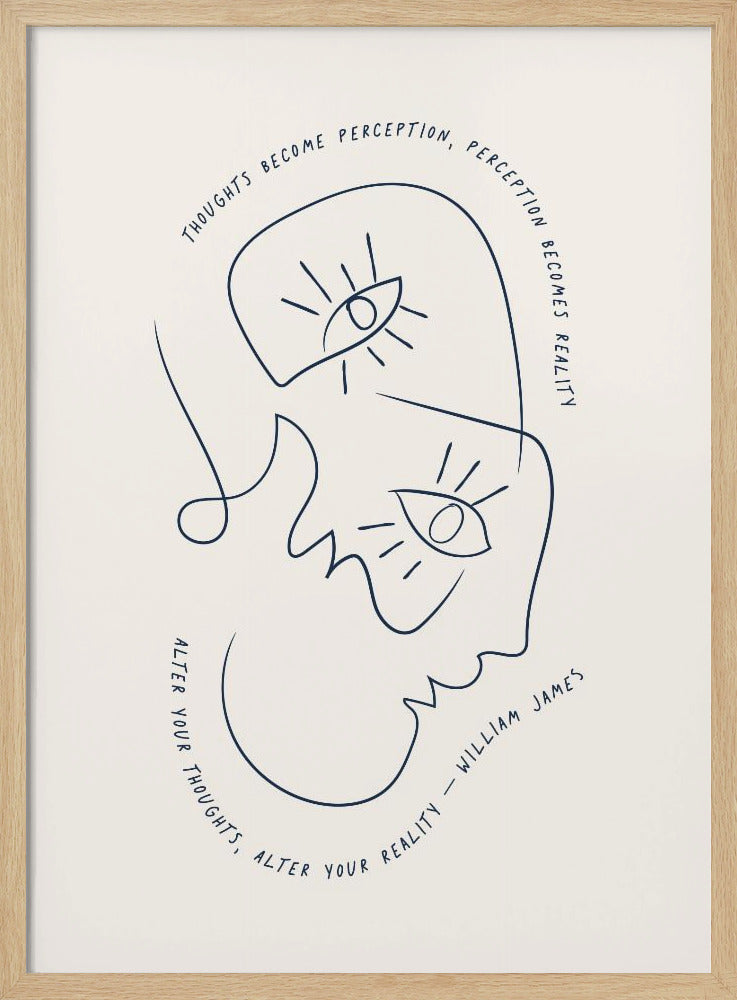 THOUGHTS BECOME PERCEPTION, PERCEPTION BECOMES REALITY
ALTER YOUR THOUGHTS, ALTER YOUR REALITY — WILLIAM JAMES